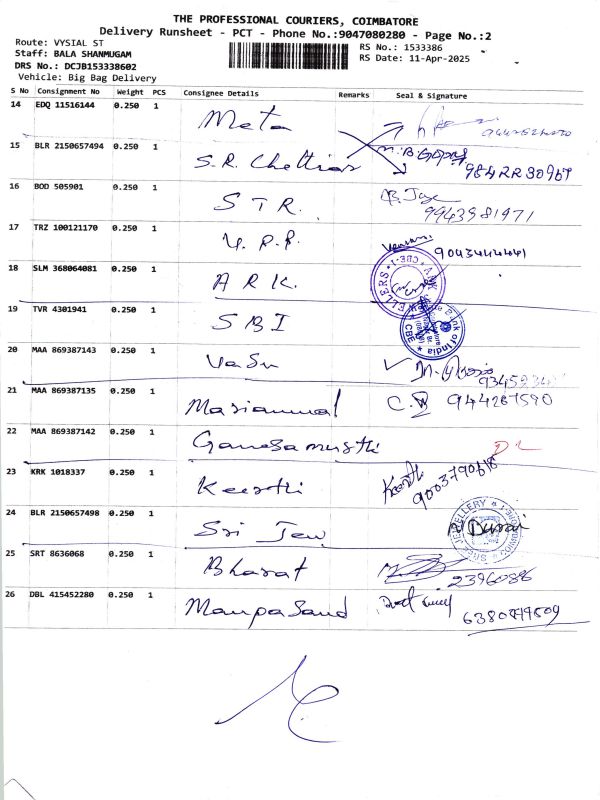 THE PROFESSIONAL COURIERS, COIMBATORE
Delivery Runsheet - PCT - Phone No.:9047080280 - Page No.:2
Route: VYSIAL ST
Staff: BALA SHANMUGAM
DRS No.: DCJB153338602
Vehicle: Big Bag Delivery
RS No.: 1533386
RS Date: 11-Apr-2025
S No Consignment No Weight PCS Consignee Details Remarks Seal & Signature
14 EDQ 11516144 0.250 1 Meta
15 BLR 2150657494 0.250 1 S.R. Chettiar 9842230967
16 BOD 505901 0.250 1 S T R. 9943981971
17 TRZ 100121170 0.250 1 9043444441
18 SLM 368064081 0.250 1 A R K.
19 TVR 4301941 0.250 1 S B I
20 MAA 869387143 0.250 1 Vasu
21 MAA 869387135 0.250 1 Mariammal 944287590
22 MAA 869387142 0.250 1 Ganesa murthi
23 KRK 1018337 0.250 1 Keerthi Keerthi 9003790618
24 BLR 2150657498 0.250 1 Sri Jew
25 SRT 8636068 0.250 1 Bharat 2396086
26 DBL 415452280 0.250 1 Manpasand